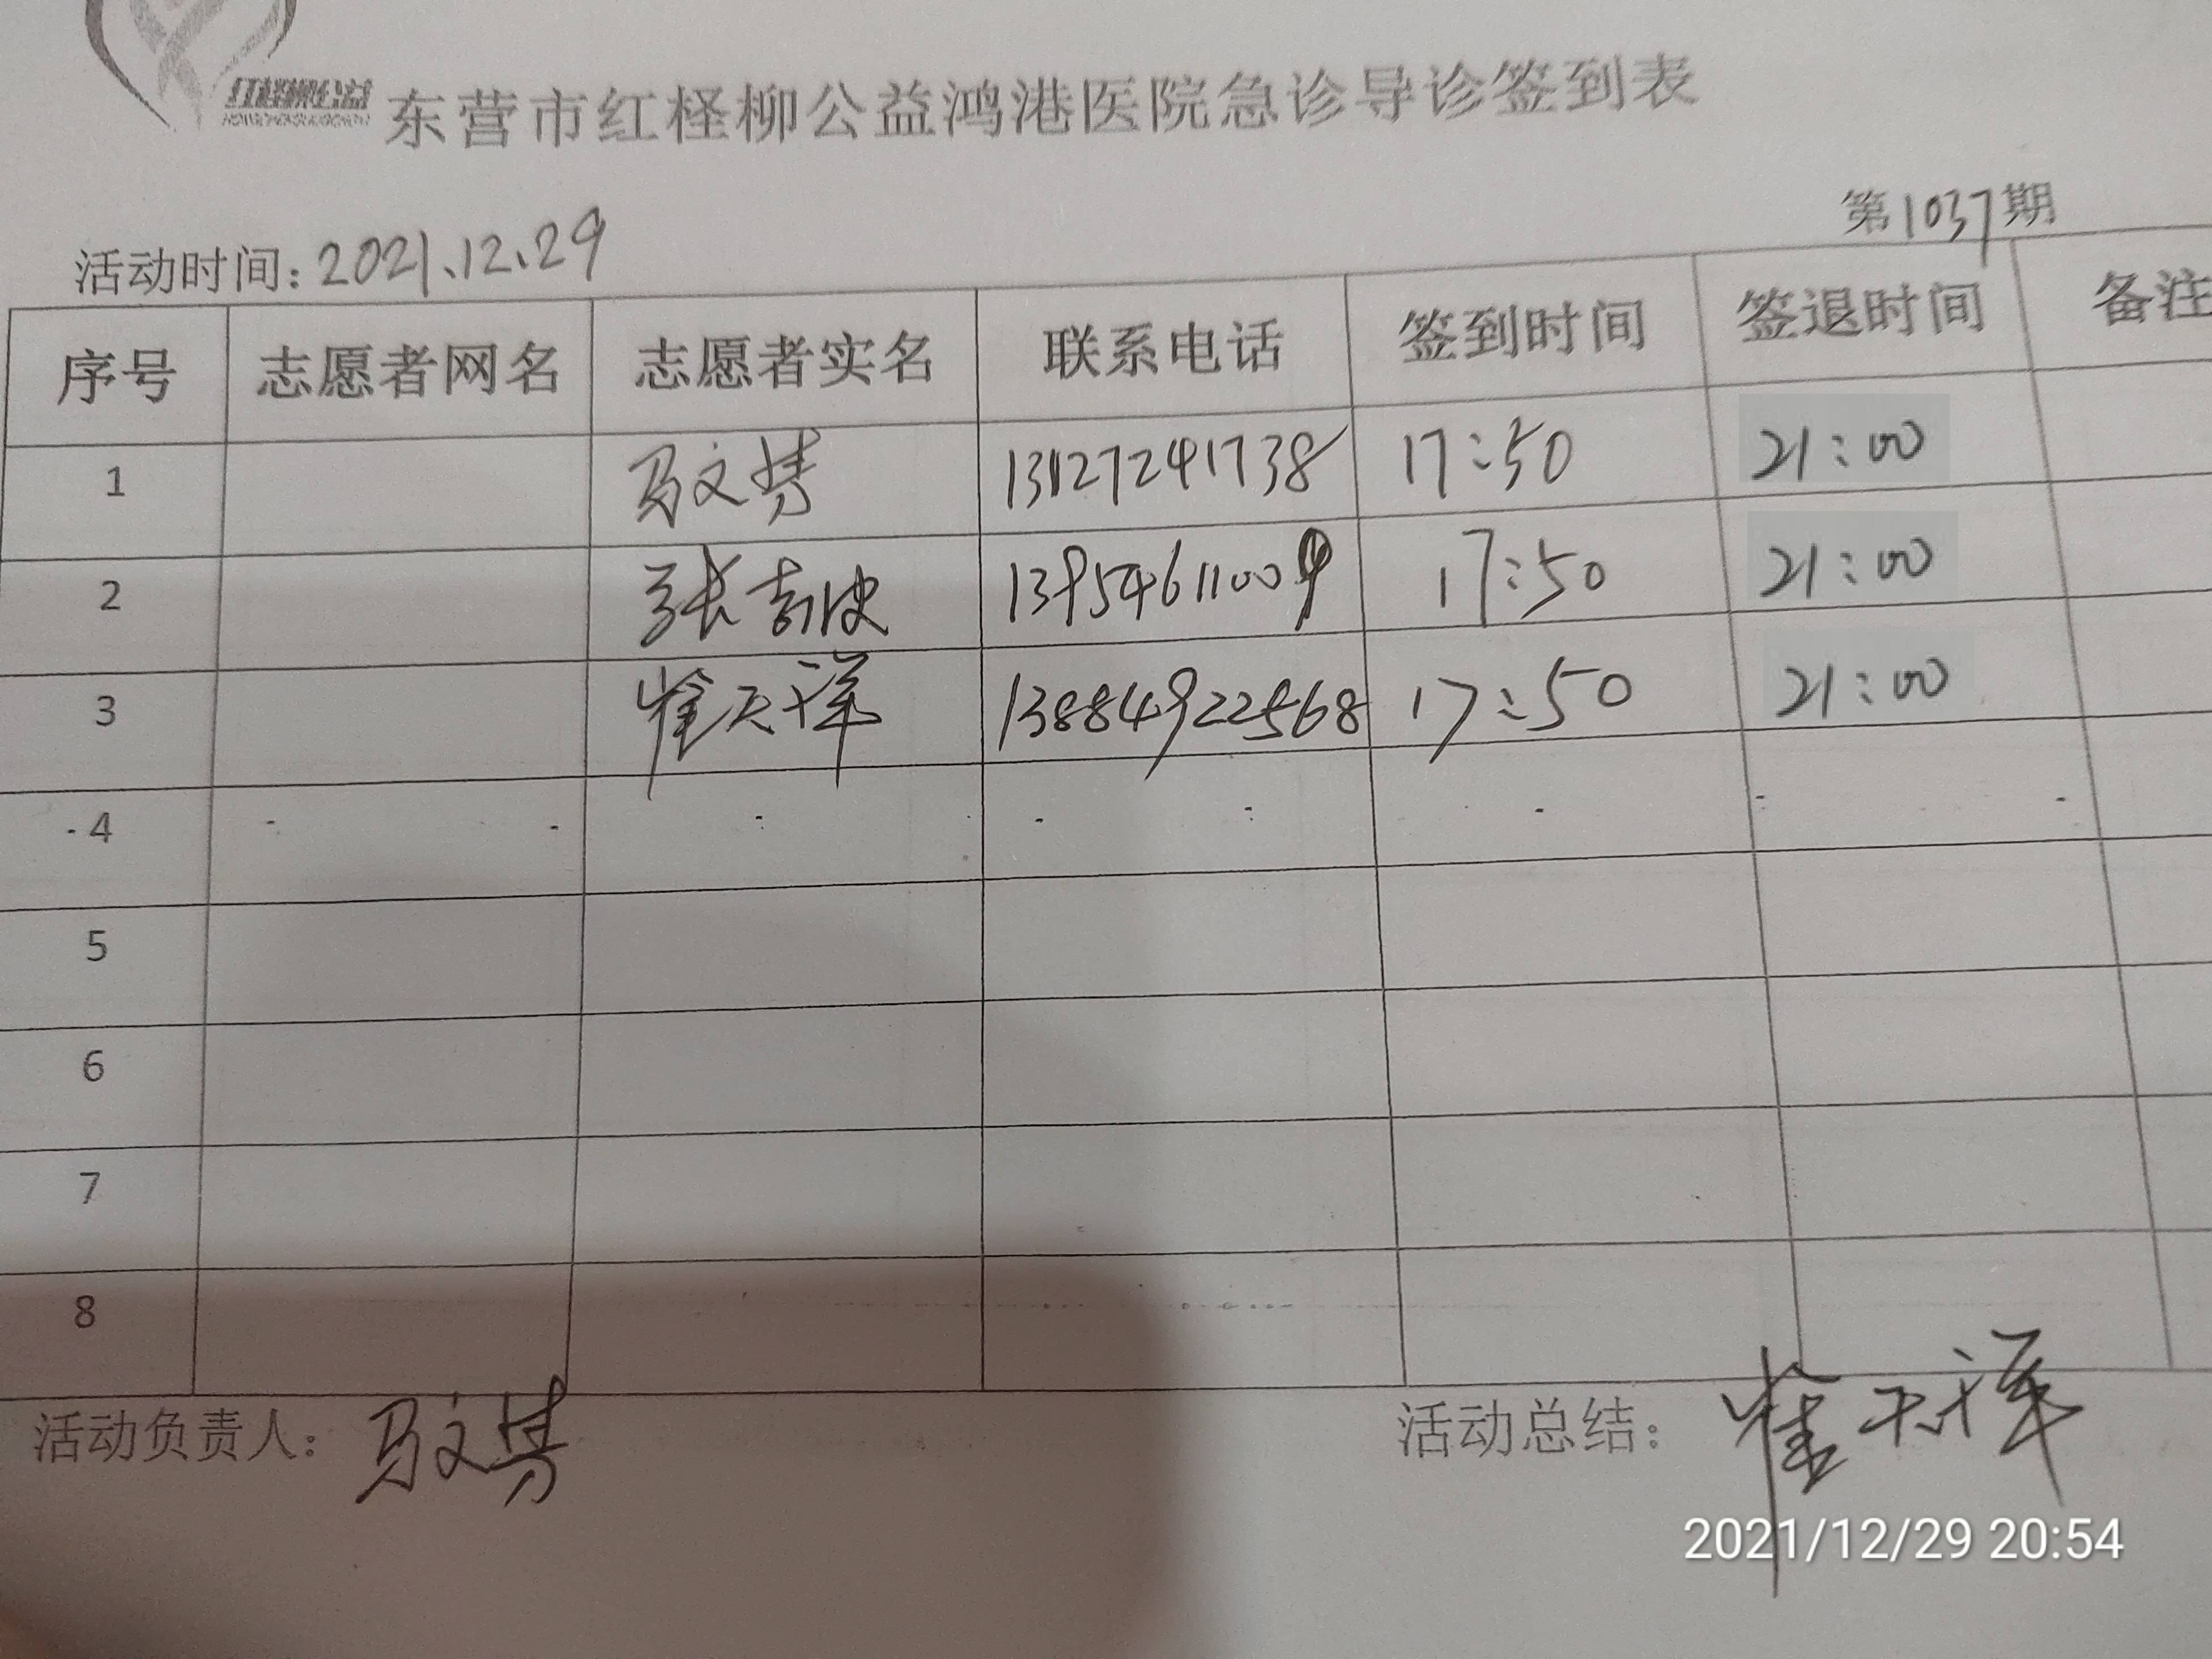 红柽柳公益
东营市红柽柳公益鸿港医院急诊导诊签到表
第1037期
活动时间:2021.12.29
序号 志愿者网名 志愿者实名 联系电话 签到时间 签退时间 备注
1 马文 13127241738 17:50 21:00
2 张 13954611009 17:50 21:00
3 崔天洋 13884922568 17:50 21:00
4
5
6
7
8
活动负责人: 马文
活动总结: 崔天洋
2021/12/29 20:54